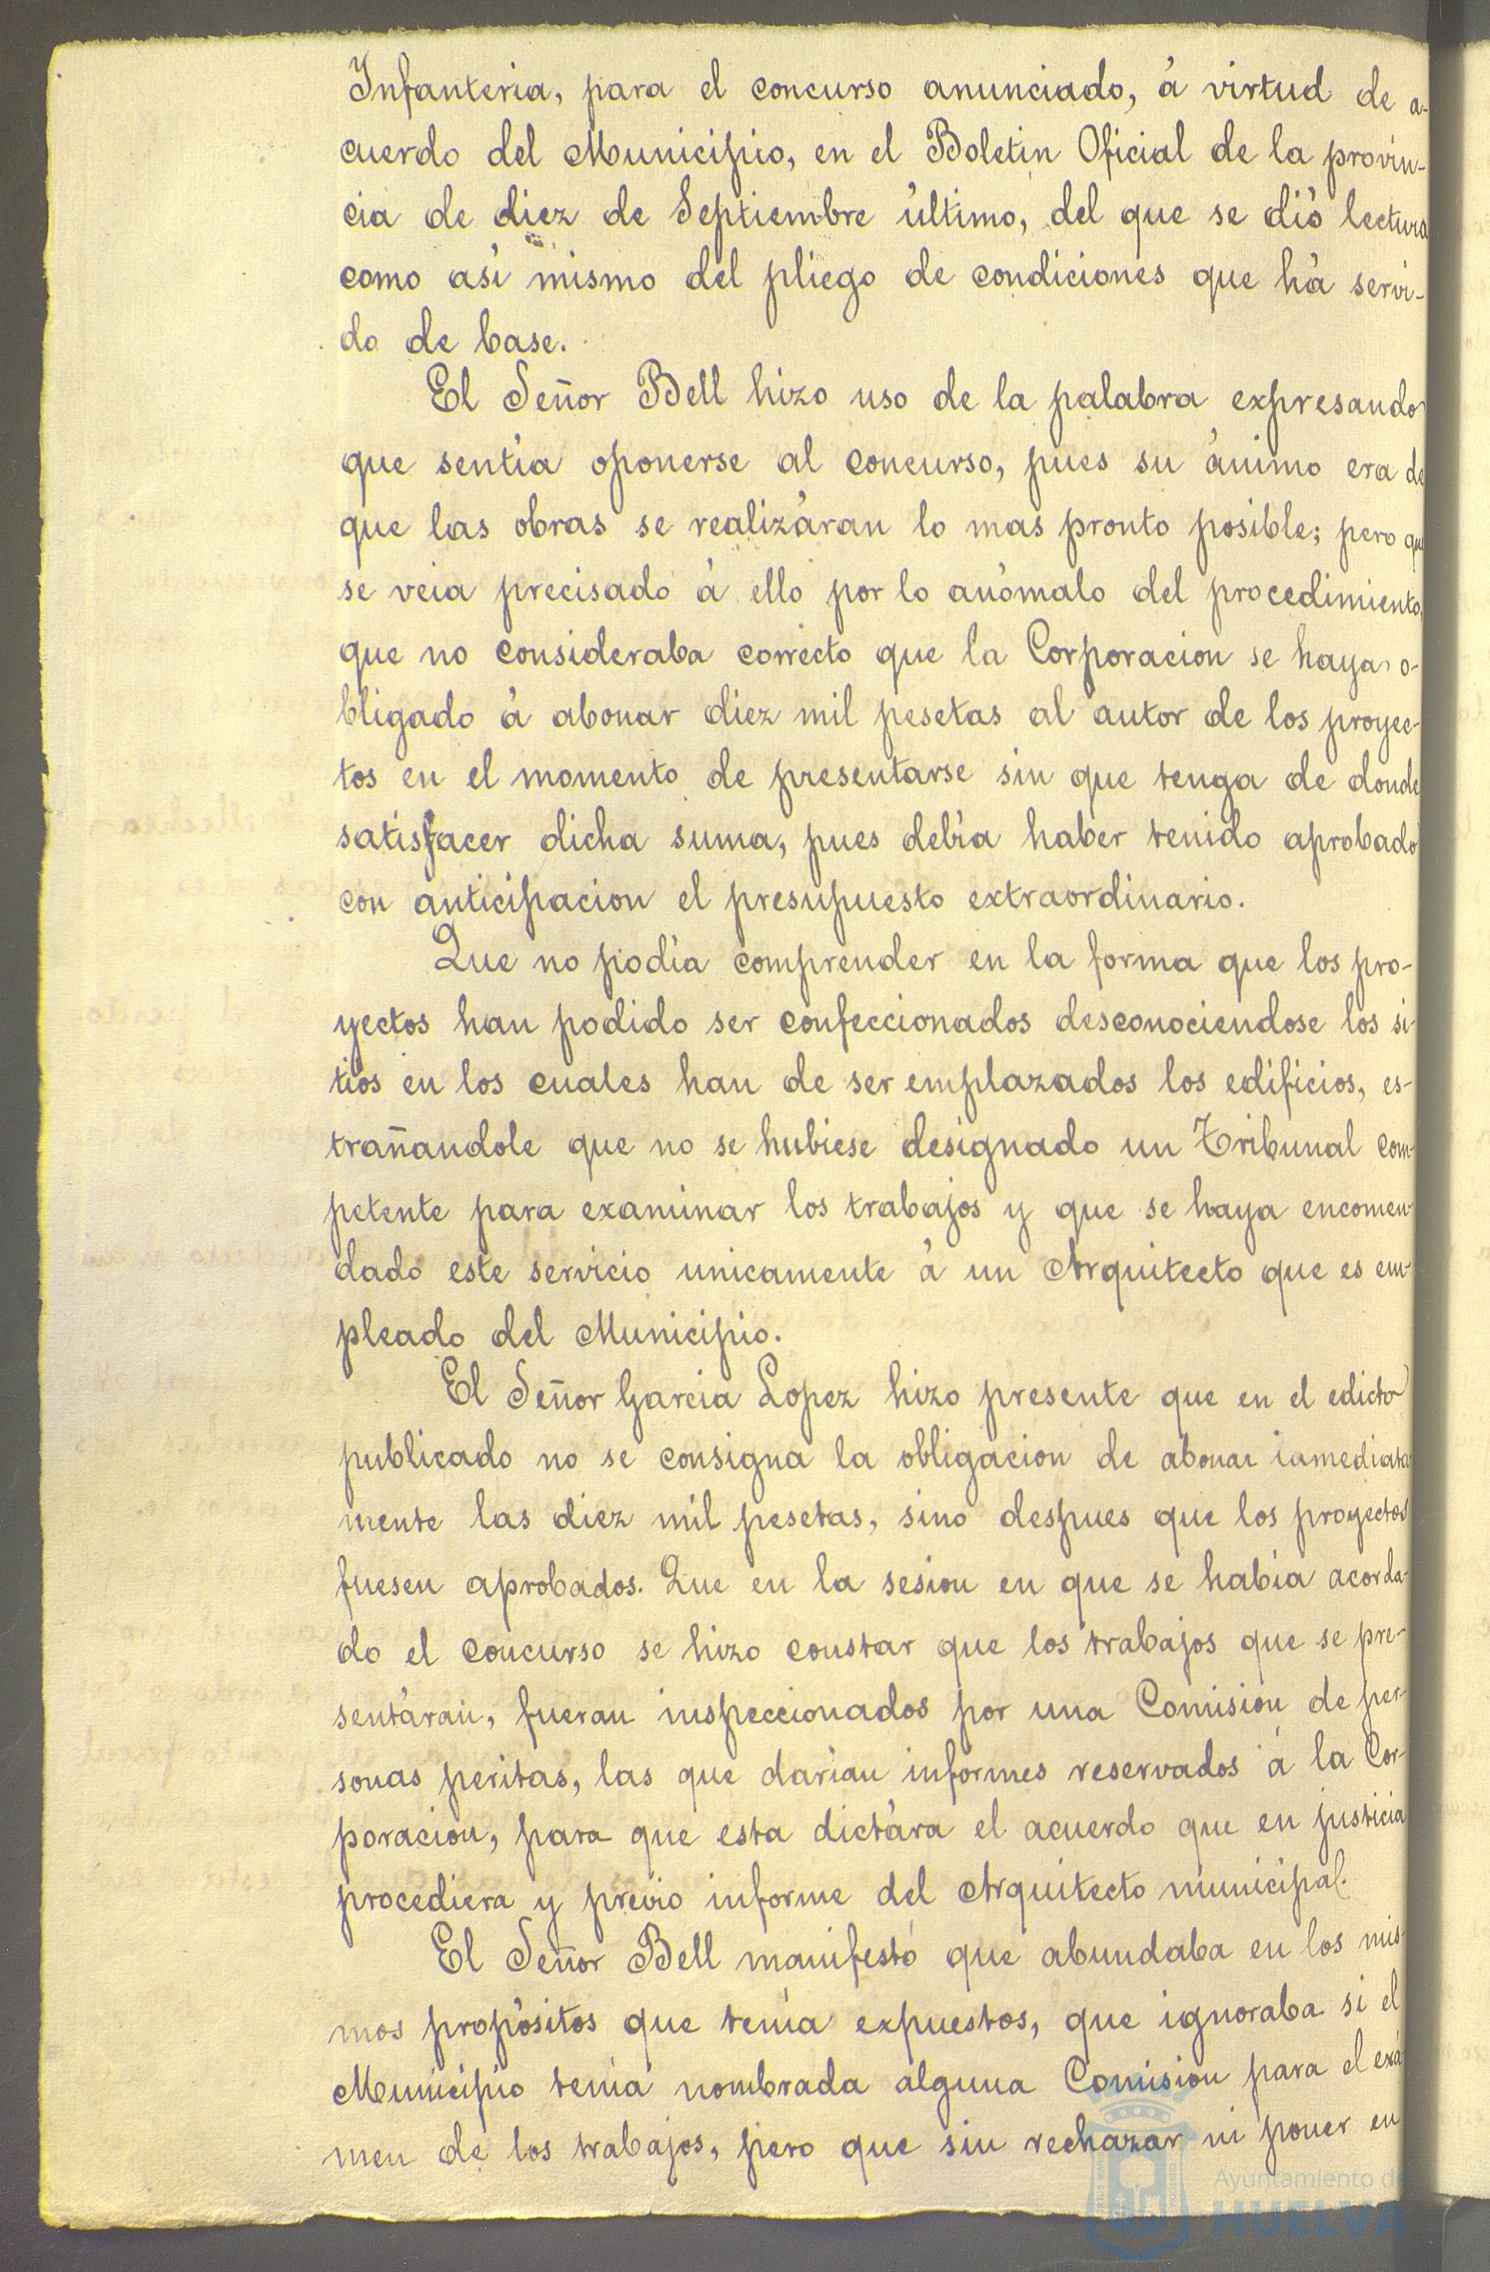 Infanteria, para el concurso anunciado, á virtud de a-
cuerdo del Municipio, en el Boletin Oficial de la provin-
cia de diez de Septiembre último, del que se dió lectura
como así mismo del pliego de condiciones que há servi-
do de base.
El Señor Bell hizo uso de la palabra expresando
que sentía oponerse al concurso, pues su ánimo era de
que las obras se realizáran lo mas pronto posible; pero que
se veia precisado á ello por lo anómalo del procedimiento,
que no consideraba correcto que la Corporacion se haya o-
bligado á abonar diez mil pesetas al autor de los proyec-
tos en el momento de presentarse sin que tenga de donde
satisfacer dicha suma, pues debía haber tenido aprobado
con anticipacion el presupuesto extraordinario.
Que no podía comprender en la forma que los pro-
yectos han podido ser confeccionados desconociendose los si-
tios en los cuales han de ser emplazados los edificios, es-
trañandole que no se hubiese designado un Tribunal com-
petente para examinar los trabajos y que se haya encomen-
dado este servicio unicamente á un Arquitecto que es em-
pleado del Municipio.
El Señor Garcia Lopez hizo presente que en el edicto
publicado no se consigna la obligacion de abonar inmediata
mente las diez mil pesetas, sino despues que los proyectos
fuesen aprobados. Que en la sesion en que se había acorda-
do el concurso se hizo constar que los trabajos que se pre-
sentáran, fueran inspeccionados por una Comision de per-
sonas peritas, las que darían informes reservados á la Cor-
poracion, para que esta dictára el acuerdo que en justicia
procediera y previo informe del Arquitecto municipal.
El Señor Bell manifestó que abundaba en los mis-
mos propósitos que tenía expuestos, que ignoraba si el
Municipio tenía nombrada alguna Comision para el exá-
men de los trabajos, pero que sin rechazar ni poner en
Ayuntamiento de
HUELVA